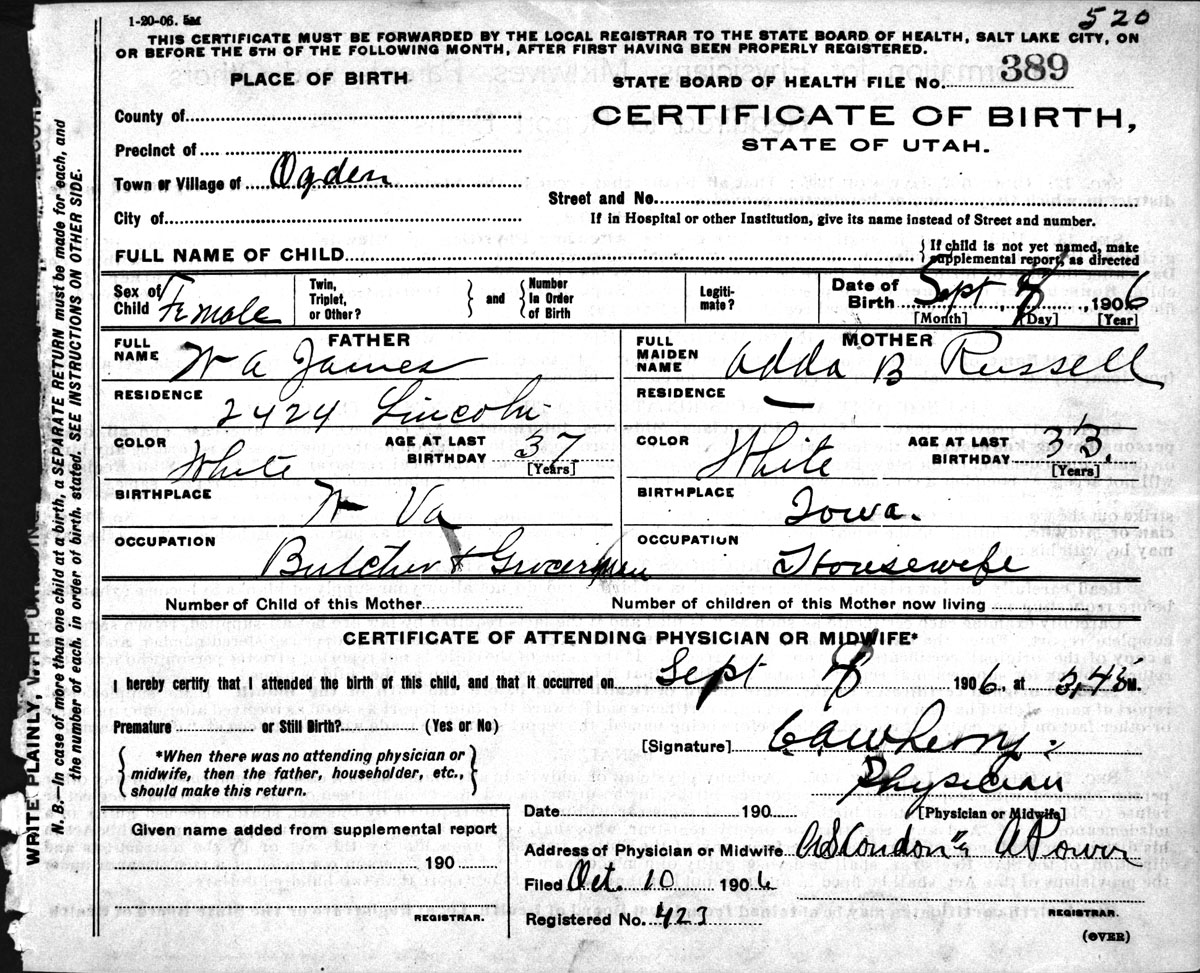 1-20-06. 5M
520
THIS CERTIFICATE MUST BE FORWARDED BY THE LOCAL REGISTRAR TO THE STATE BOARD OF HEALTH, SALT LAKE CITY, ON
OR BEFORE THE 5TH OF THE FOLLOWING MONTH, AFTER FIRST HAVING BEEN PROPERLY REGISTERED.
PLACE OF BIRTH
STATE BOARD OF HEALTH FILE No. 389
County of
CERTIFICATE OF BIRTH,
STATE OF UTAH.
Precinct of
Town or Village of Ogden
Street and No.
City of
If in Hospital or other Institution, give its name instead of Street and number.
FULL NAME OF CHILD
{ If child is not yet named, make
supplemental report, as directed
Sex of Child Female
Twin, Triplet, or Other? } and { Number In Order of Birth
Legiti- mate?
Date of Birth Sept 8, 1906
[Month] [Day] [Year]
FATHER
FULL NAME W A James
MOTHER
FULL MAIDEN NAME Adda B Russell
RESIDENCE 2424 Lincoln
RESIDENCE —
COLOR White AGE AT LAST BIRTHDAY 37 [Years]
COLOR White AGE AT LAST BIRTHDAY 33. [Years]
BIRTHPLACE W Va
BIRTHPLACE Iowa.
OCCUPATION Butcher & Groceryman
OCCUPATION Housewife
Number of Child of this Mother
Number of children of this Mother now living
CERTIFICATE OF ATTENDING PHYSICIAN OR MIDWIFE*
I hereby certify that I attended the birth of this child, and that it occurred on Sept 8 1906., at 3,45 M.
Premature or Still Birth? (Yes or No)
{ *When there was no attending physician or
midwife, then the father, householder, etc.,
should make this return. }
[Signature]
Physician
[Physician or Midwife]
Date 190
Given name added from supplemental report
190
REGISTRAR.
Address of Physician or Midwife
Filed Oct. 10 1906
Registered No. 423
REGISTRAR.
(OVER)
WRITE PLAINLY, WITH UN
N. B.—In case of more than one child at a birth, a SEPARATE RETURN must be made for each, and
the number of each, in order of birth, stated. SEE INSTRUCTIONS ON OTHER SIDE.